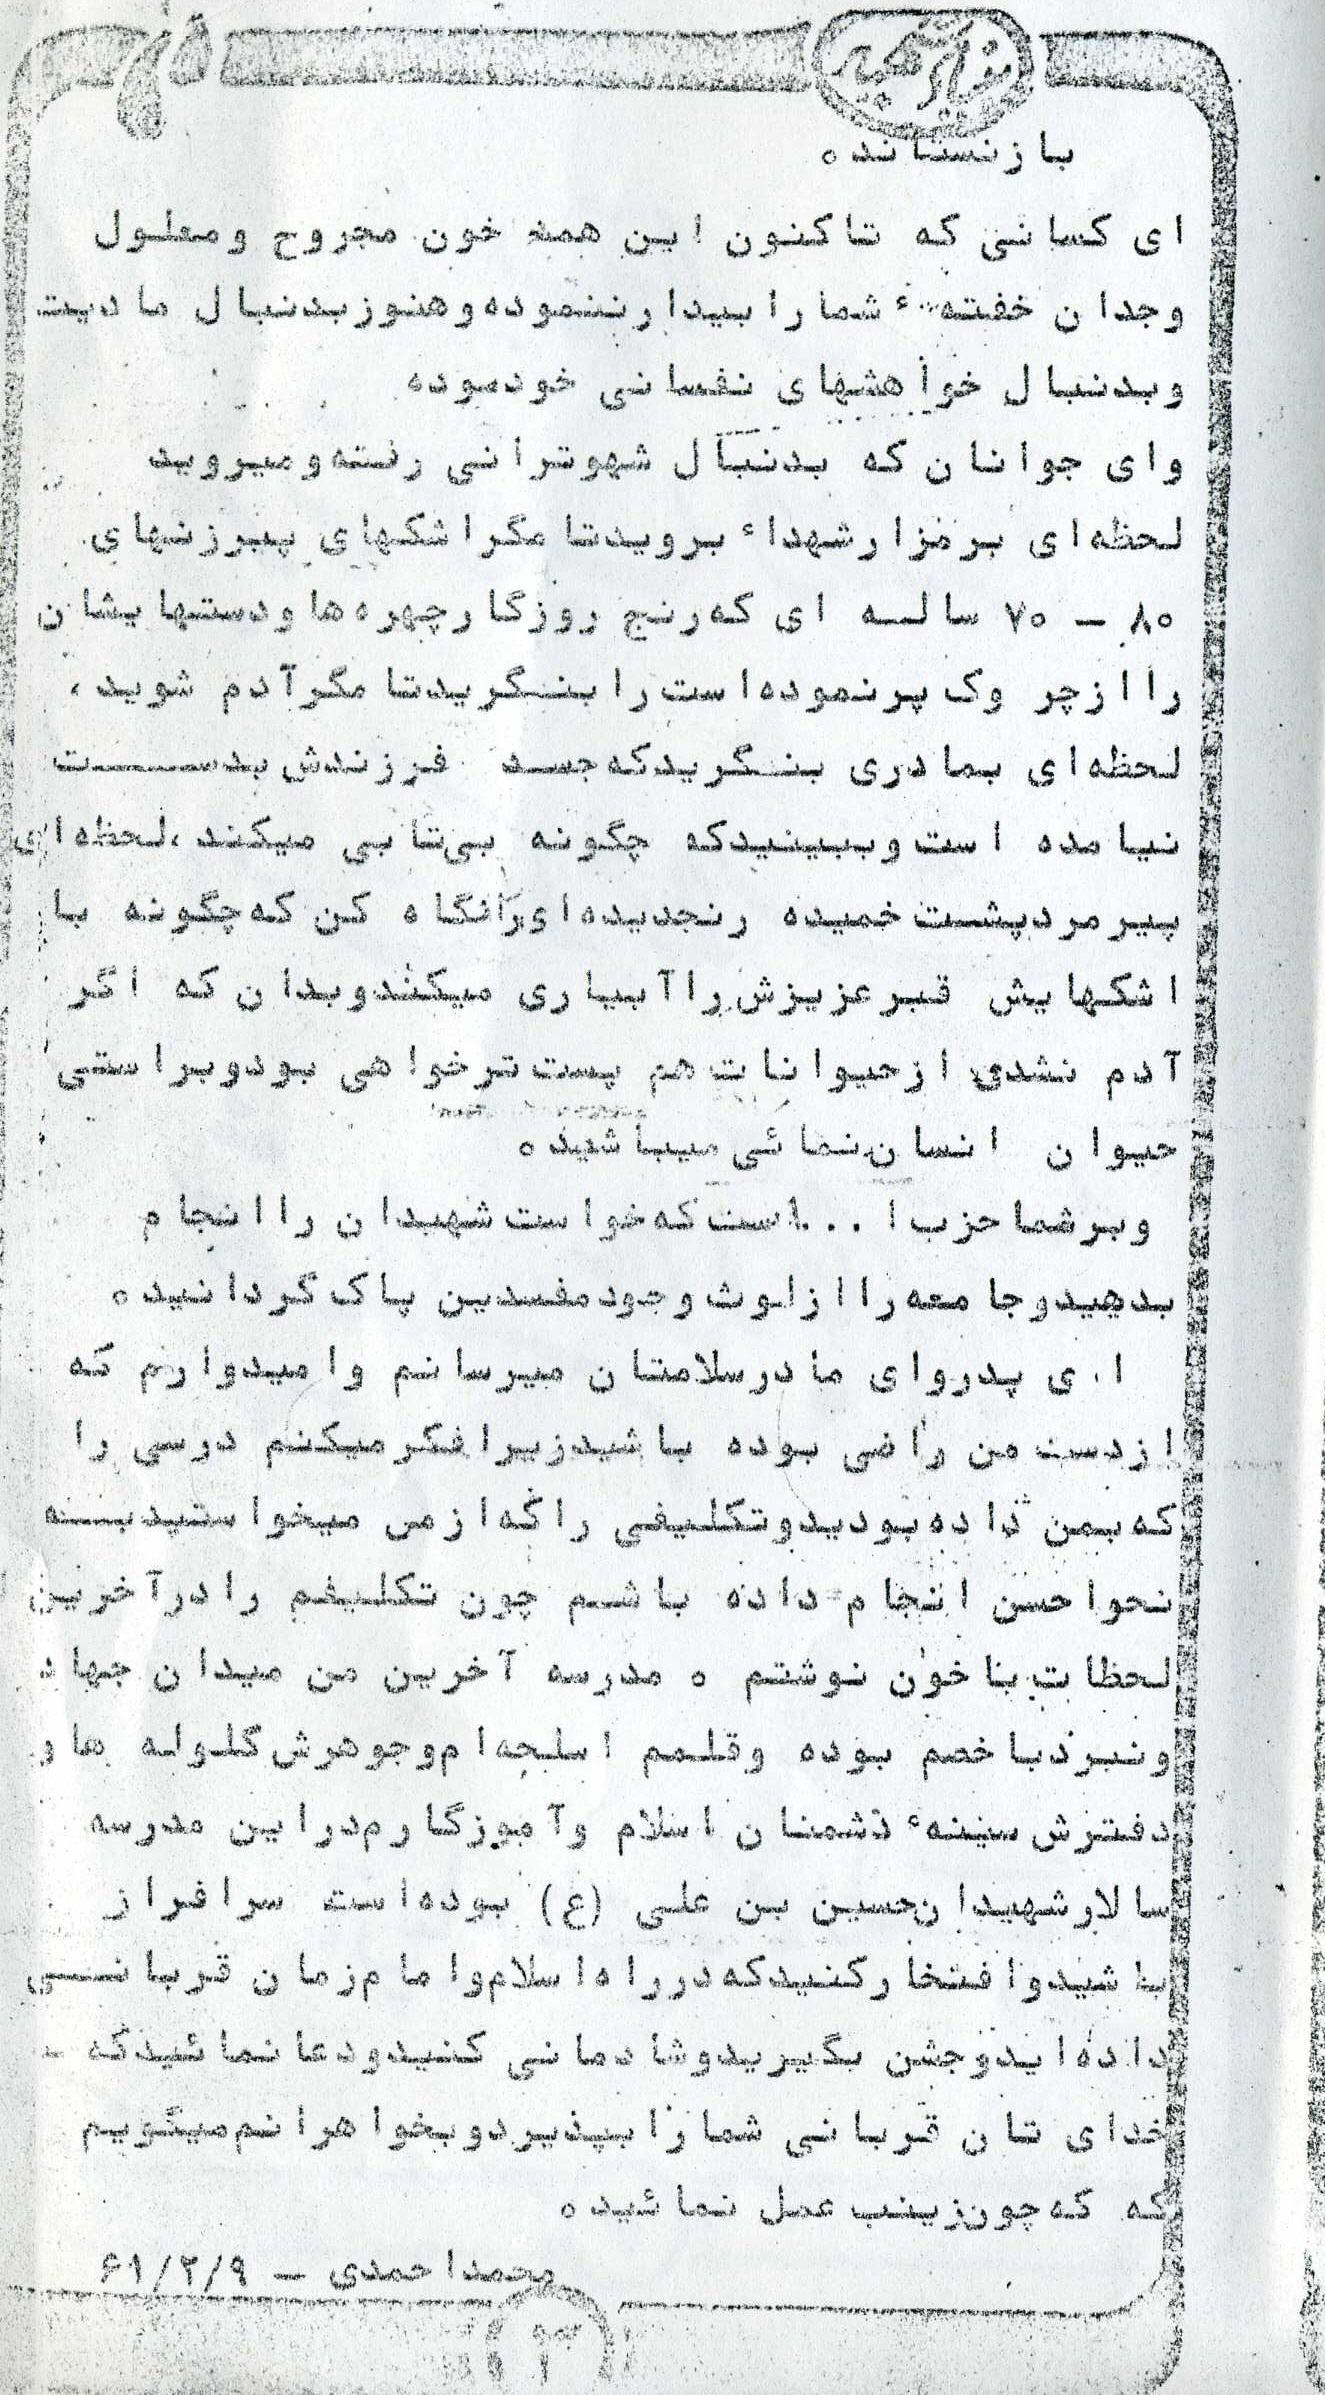 بازنستانده
ای کسانی که تاکنون این همه خون مجروح ومعلول
وجدان خفتهٔ شما را بیدار ننموده وهنوز بدنبال مادیت
وبدنبال خواهشهای نفسانی خودبوده
وای جوانان که بدنبال شهوترانی رفته ومیروید
لحظه‌ای بر مزار شهداء بروید تا مگر اشکهای پیرزنهای
۸۰ - ۷۰ ساله ای که رنج روزگار چهره‌ها ودستهایشان
را از چروک پر نموده است را بنگرید تا مگر آدم شوید،
لحظه‌ای بمادری بنگرید که جسد فرزندش بدست
نیامده است وببینید که چگونه بی‌تابی میکند، لحظه‌ای
پیرمرد پشت خمیده رنجدیده‌ای را نگاه کن که چگونه با
اشکهایش قبر عزیزش را آبیاری میکند وبدان که اگر
آدم نشدی از حیوانات هم پست تر خواهی بود وبراستی
حیوان انسان نمائی میباشید۰
وبر شما حزب ا...است که خواست شهیدان را انجام
بدهید وجامعه را از لوث وجود مفسدین پاک گردانید۰
ای پدر وای مادر سلامتان میرسانم وامیدوارم که
از دست من راضی بوده باشید زیرا فکر میکنم درسی را
که بمن داده بودید وتکلیفی را که از من میخواستید بـه
نحو احسن انجام داده باشم چون تکلیفم را در آخرین
لحظات با خون نوشتم ۰ مدرسه آخرین من میدان جهاد
ونبرد با خصم بوده وقلمم اسلحه‌ام وجوهرش گلوله ها و
دفترش سینهٔ دشمنان اسلام وآموزگارم در این مدرسه
سالار شهیدان حسین بن علی (ع) بوده است سرافراز
باشید وافتخار کنید که در راه اسلام وامام زمان قربانی
داده‌اید وجشن بگیرید وشادمانی کنید ودعا نمائید که -
خدای تان قربانی شما را بپذیرد وبخواهرانم میگویم
که که چون زینب عمل نمائید۰
محمد احمدی - ۶۱/۲/۹